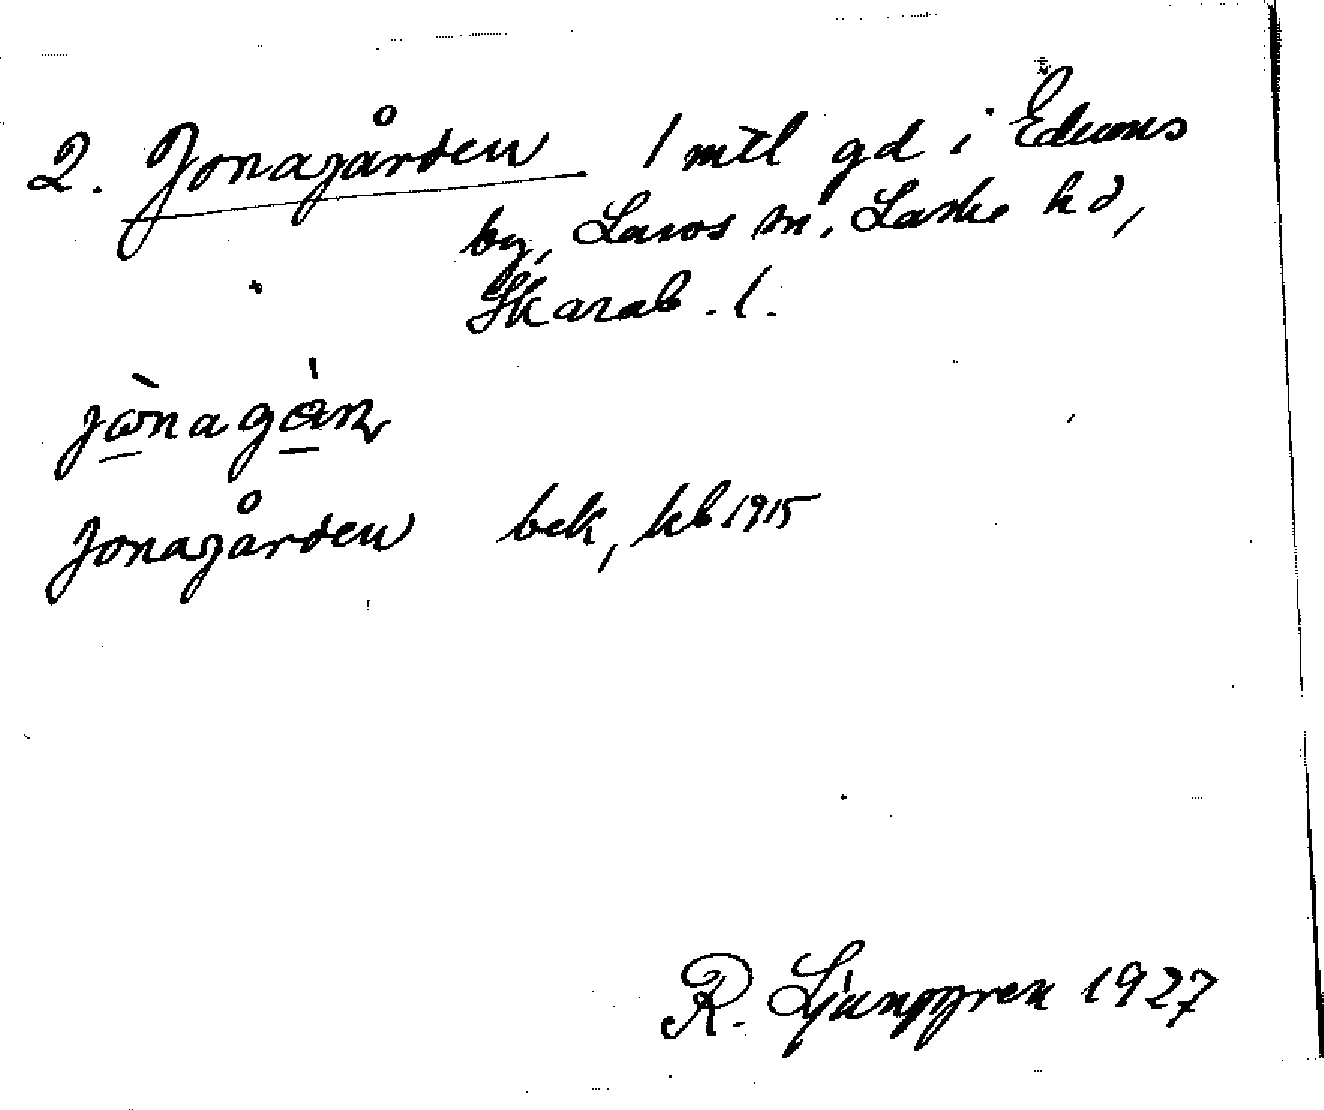 2. Jonagården 1 mtl gd i Edums
by, Laros sn. Laske hd,
Skarab. l.
Jonagården bek, kb 1915
R. Ljunggren 1927